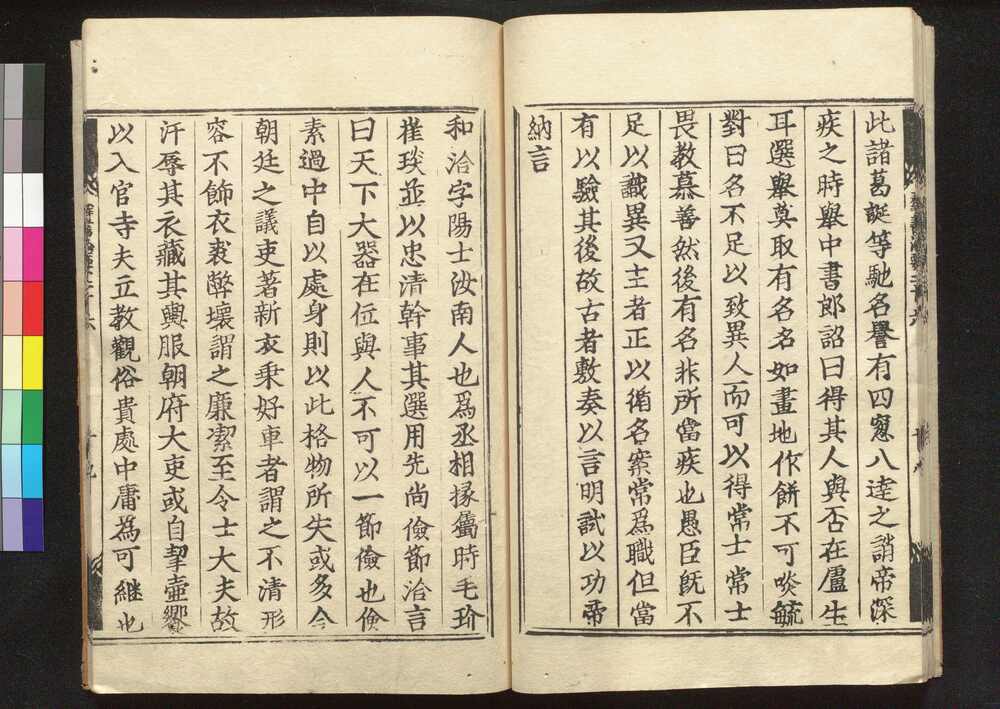 此諸葛誕等馳名譽有四窓八逵之誚帝深
疾之時舉中書郎詔曰得其人與否在盧生
耳選舉莫取有名名如畫地作餅不可啖毓
對曰名不足以致異人而可以得常士常士
畏教慕善然後有名非所當疾也愚臣既不
足以識異又主者正以循名案常爲職但當
有以驗其後故古者敷奏以言明試以功帝
納言
和洽字陽士汝南人也爲丞相掾屬時毛玠
崔琰並以忠清幹事其選用先尚儉節洽言
曰天下大器在位與人不可以一節儉也儉
素過中自以處身則以此格物所失或多今
朝廷之議吏著新衣乘好車者謂之不清形
容不飾衣裘弊壞謂之廉潔至令士大夫故
汙辱其衣藏其輿服朝府大吏或自挈壷飡
以入官寺夫立教觀俗貴處中庸爲可継也